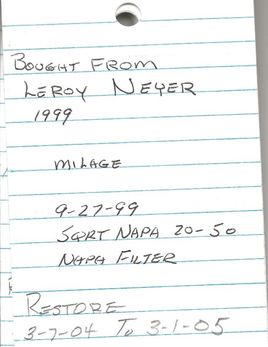 BOUGHT FROM
LEROY NEYER
1999
MILAGE
9-27-99
5QRT NAPA 20-50
NAPA FILTER
RESTORE
3-7-04 To 3-1-05